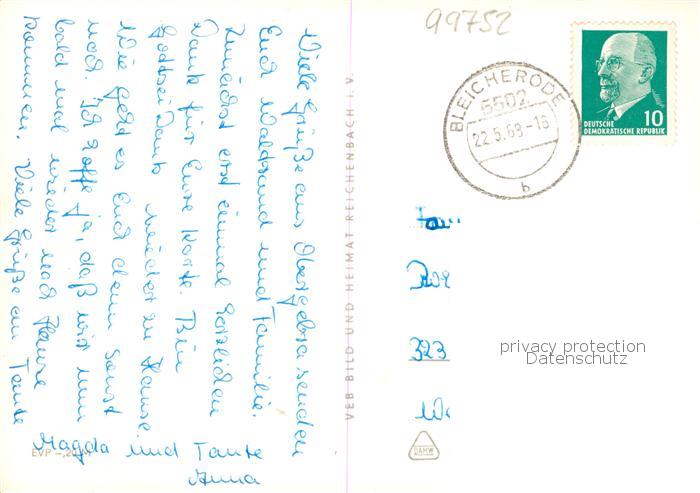 Viele Grüße aus Obergebra senden
Euch Waltraud und Familie.
Zunächst erst einmal herzlichen
Dank für Eure Karte. Bin
Gottseidank wieder zu Hause.
Wie geht es Euch denn sonst
noch. Ich hoffe ja, daß wir nun
bald mal wieder nach Hause
kommen. Viele Grüße an Tante
Magda und Tante
Anna
EVP -,20 M
VEB BILD UND HEIMAT REICHENBACH i. V.
99752
BLEICHERODE
5502
22.5.69-16
b
DEUTSCHE
DEMOKRATISCHE REPUBLIK
10
323
privacy protection
Datenschutz
DAMW